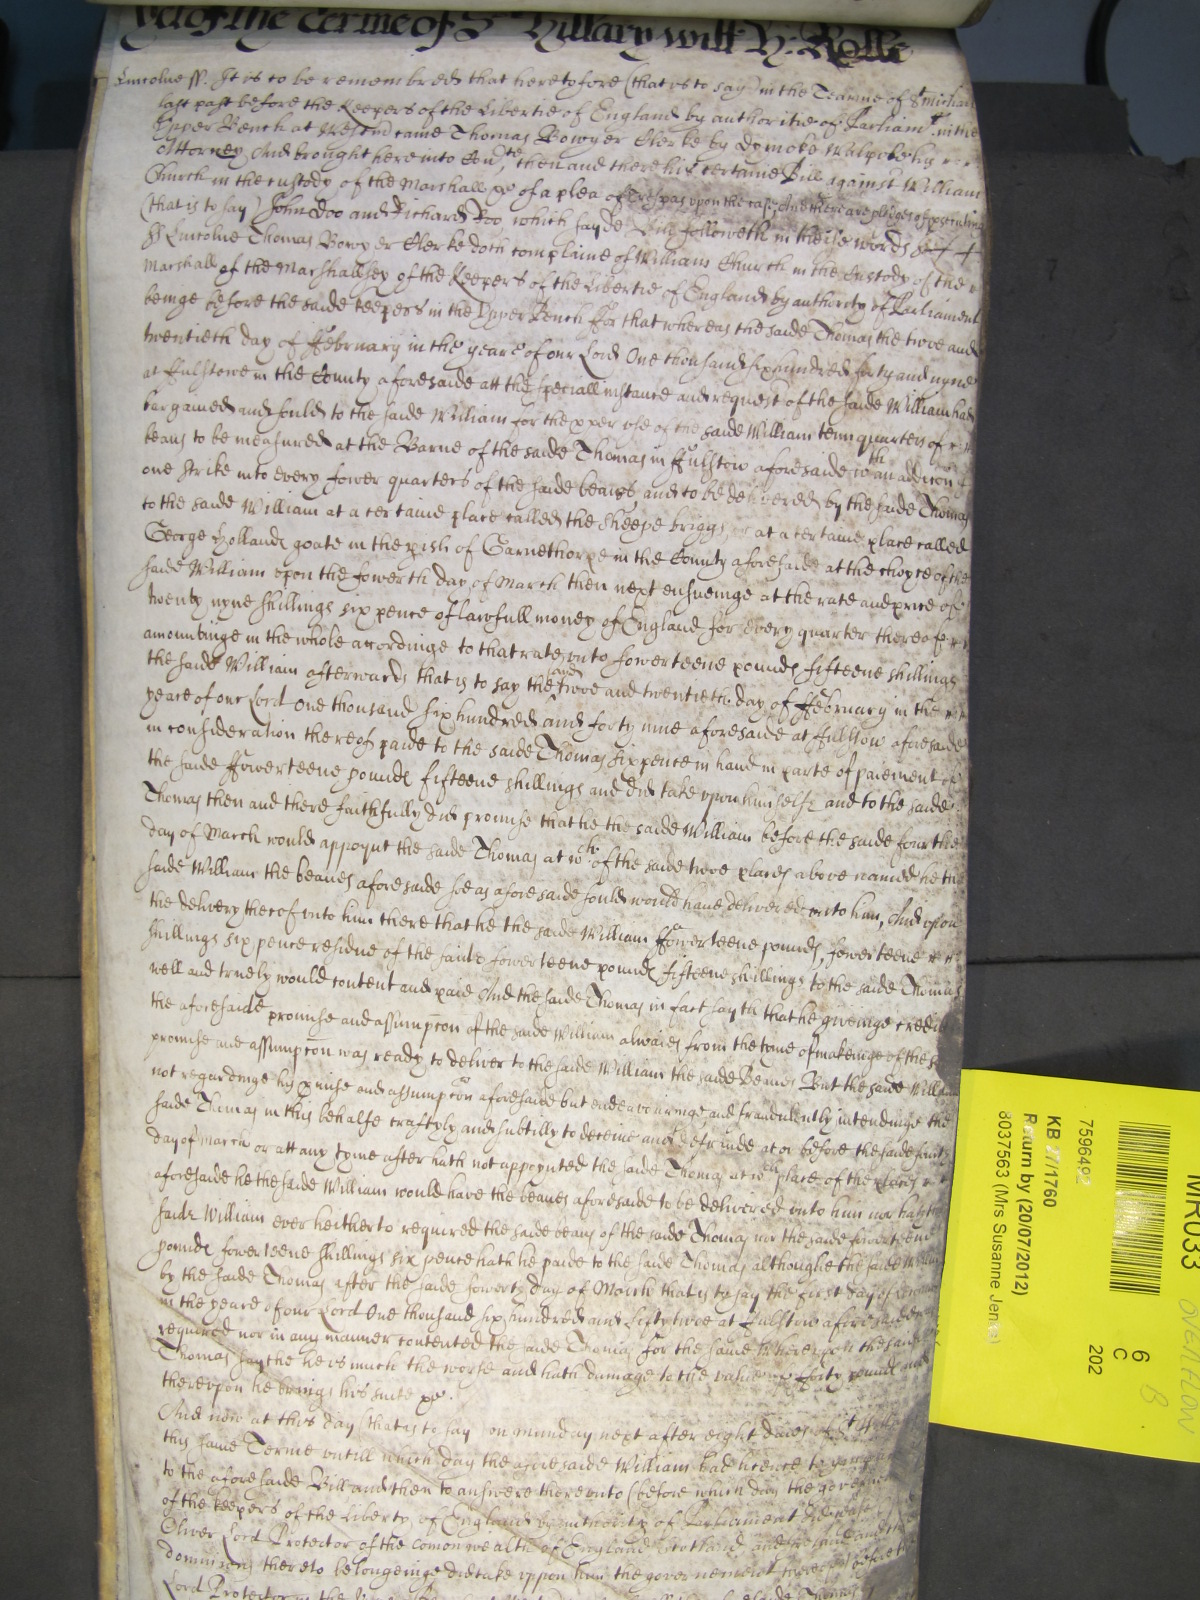 yet of the Terme of St Hillary witt H: Rolle
Lincolne ss. It is to be remembred that heretofore (that is to say) in the Tearme of St Michaell
last past before the Keepers of the Libertie of England by authoritie of Parliamt in the
Upper Bench at Westm came Thomas Bowyer Clerke by Dymoke Walpole his
Attorney And brought here into then and there his certaine Bill against William
Church in the custody of the Marshall &c of a plea of Trespas upon the case And there are pledges of prosecuting
(that is to say) John Doo and Richard Roo which sayde Bill followeth in theise words
ss Lincolne Thomas Bowyer Clerke doth complaine of William Church in the Custody of the
Marshall of the Marshallsey of the Keepers of the Libertie of England by authority of Parliament
beinge before the saide keepers in the Upper Bench ffor that whereas the saide Thomas the twoe and
twentieth day of ffebruary in the yeare of our Lord One thousand six hundred forty and nyne
at ffulstowe in the County aforesaide att the speciall instance and request of the saide William had
bargained and sould to the saide William for the pper use of the saide William tenn quarters of
beans to be measured at the Barne of the saide Thomas in ffulstow aforesaide wth an addicon of
one strike into every fower quarters of the saide beans, and to be delivered by the saide Thomas
to the saide William at a certaine place called the Sheepe briggs, or at a certaine place called
George Hollands goate in the pish of Garnethorpe in the County aforesaide at the choyce of the
saide William upon the fowerth day of March then next ensueinge at the rate and price of
twenty nyne shillings six pence of lawfull money of England for every quarter thereof
amountinge in the whole accordinge to that rate unto fowerteene pounds fifteene shillings
the saide William afterwards that is to say the said twoe and twentieth day of ffebruary in the
yeare of our Lord One thousand six hundred and forty nine aforesaide at ffulstow aforesaide
in consideration thereof paide to the saide Thomas six pence in hand in parte of paiement of
the saide ffowerteene pounds fifteene shillings and did take upon himselfe and to the saide
Thomas then and there faithfully did promise that he the saide William before the saide fourth
day of March would appoynt the saide Thomas at wch of the saide twoe places above named he the
saide William the beanes aforesaide soe as aforesaide sould would have delivered unto him, And upon
the delivery thereof unto him there that he the saide William ffowerteene pounds, fowerteene
shillings six pence residue of the saide fowerteene pounds fifteene shillings to the saide Thomas
well and truely would content and paie And the saide Thomas in fact sayth that he giveinge credit
the aforesaide promise and assumpcon of the saide William alwaies from the tyme of makeinge of the
promise and assumpcon was ready to deliver to the saide William the saide Beanes But the saide William
not regardinge his pmise and assumpcon aforesaide but endeavouringe and fraudulently intendinge the
saide Thomas in this behalfe craftyly and subtilly to deceive and defraude at or before the saide
day of March or att any tyme after hath not appoynted the saide Thomas at wch place of the places
aforesaide he the saide William would have the beanes aforesaide to be delivered unto him nor hath the
saide William ever heitherto required the saide beans of the saide Thomas nor the saide fowerteene
pounds fowerteene shillings six pence hath he paide to the saide Thomas althoughe the saide William
by the saide Thomas after the saide fowerth day of March that is to say the first day of
in the yeare of our Lord One thousand six hundred and fifty twoe at ffulstow aforesaide
required nor in any manner contented the saide Thomas for the same Whereupon the saide
Thomas sayth he is much the worse and hath damage to the value of forty pounds and
thereupon he brings his suite &c.
And now at this day (that is to say) on munday next after eight daies of St Hillary
this same Terme untill which day the aforesaide William had licence to
to the aforesaide Bill and then to answere thereunto (before which day the
of the keepers of the Liberty of England by authority of Parliament did cease
Oliver Lord Protector of the comonwealth of England Scotland and Ireland and the
dominions thereto belongeinge did take uppon him the government thereof before the
Lord Protector in the Upper
MR033
7596492
KB 27/1760
Return by (20/07/2012)
8037563 (Mrs Susanne Jen
6
C
202